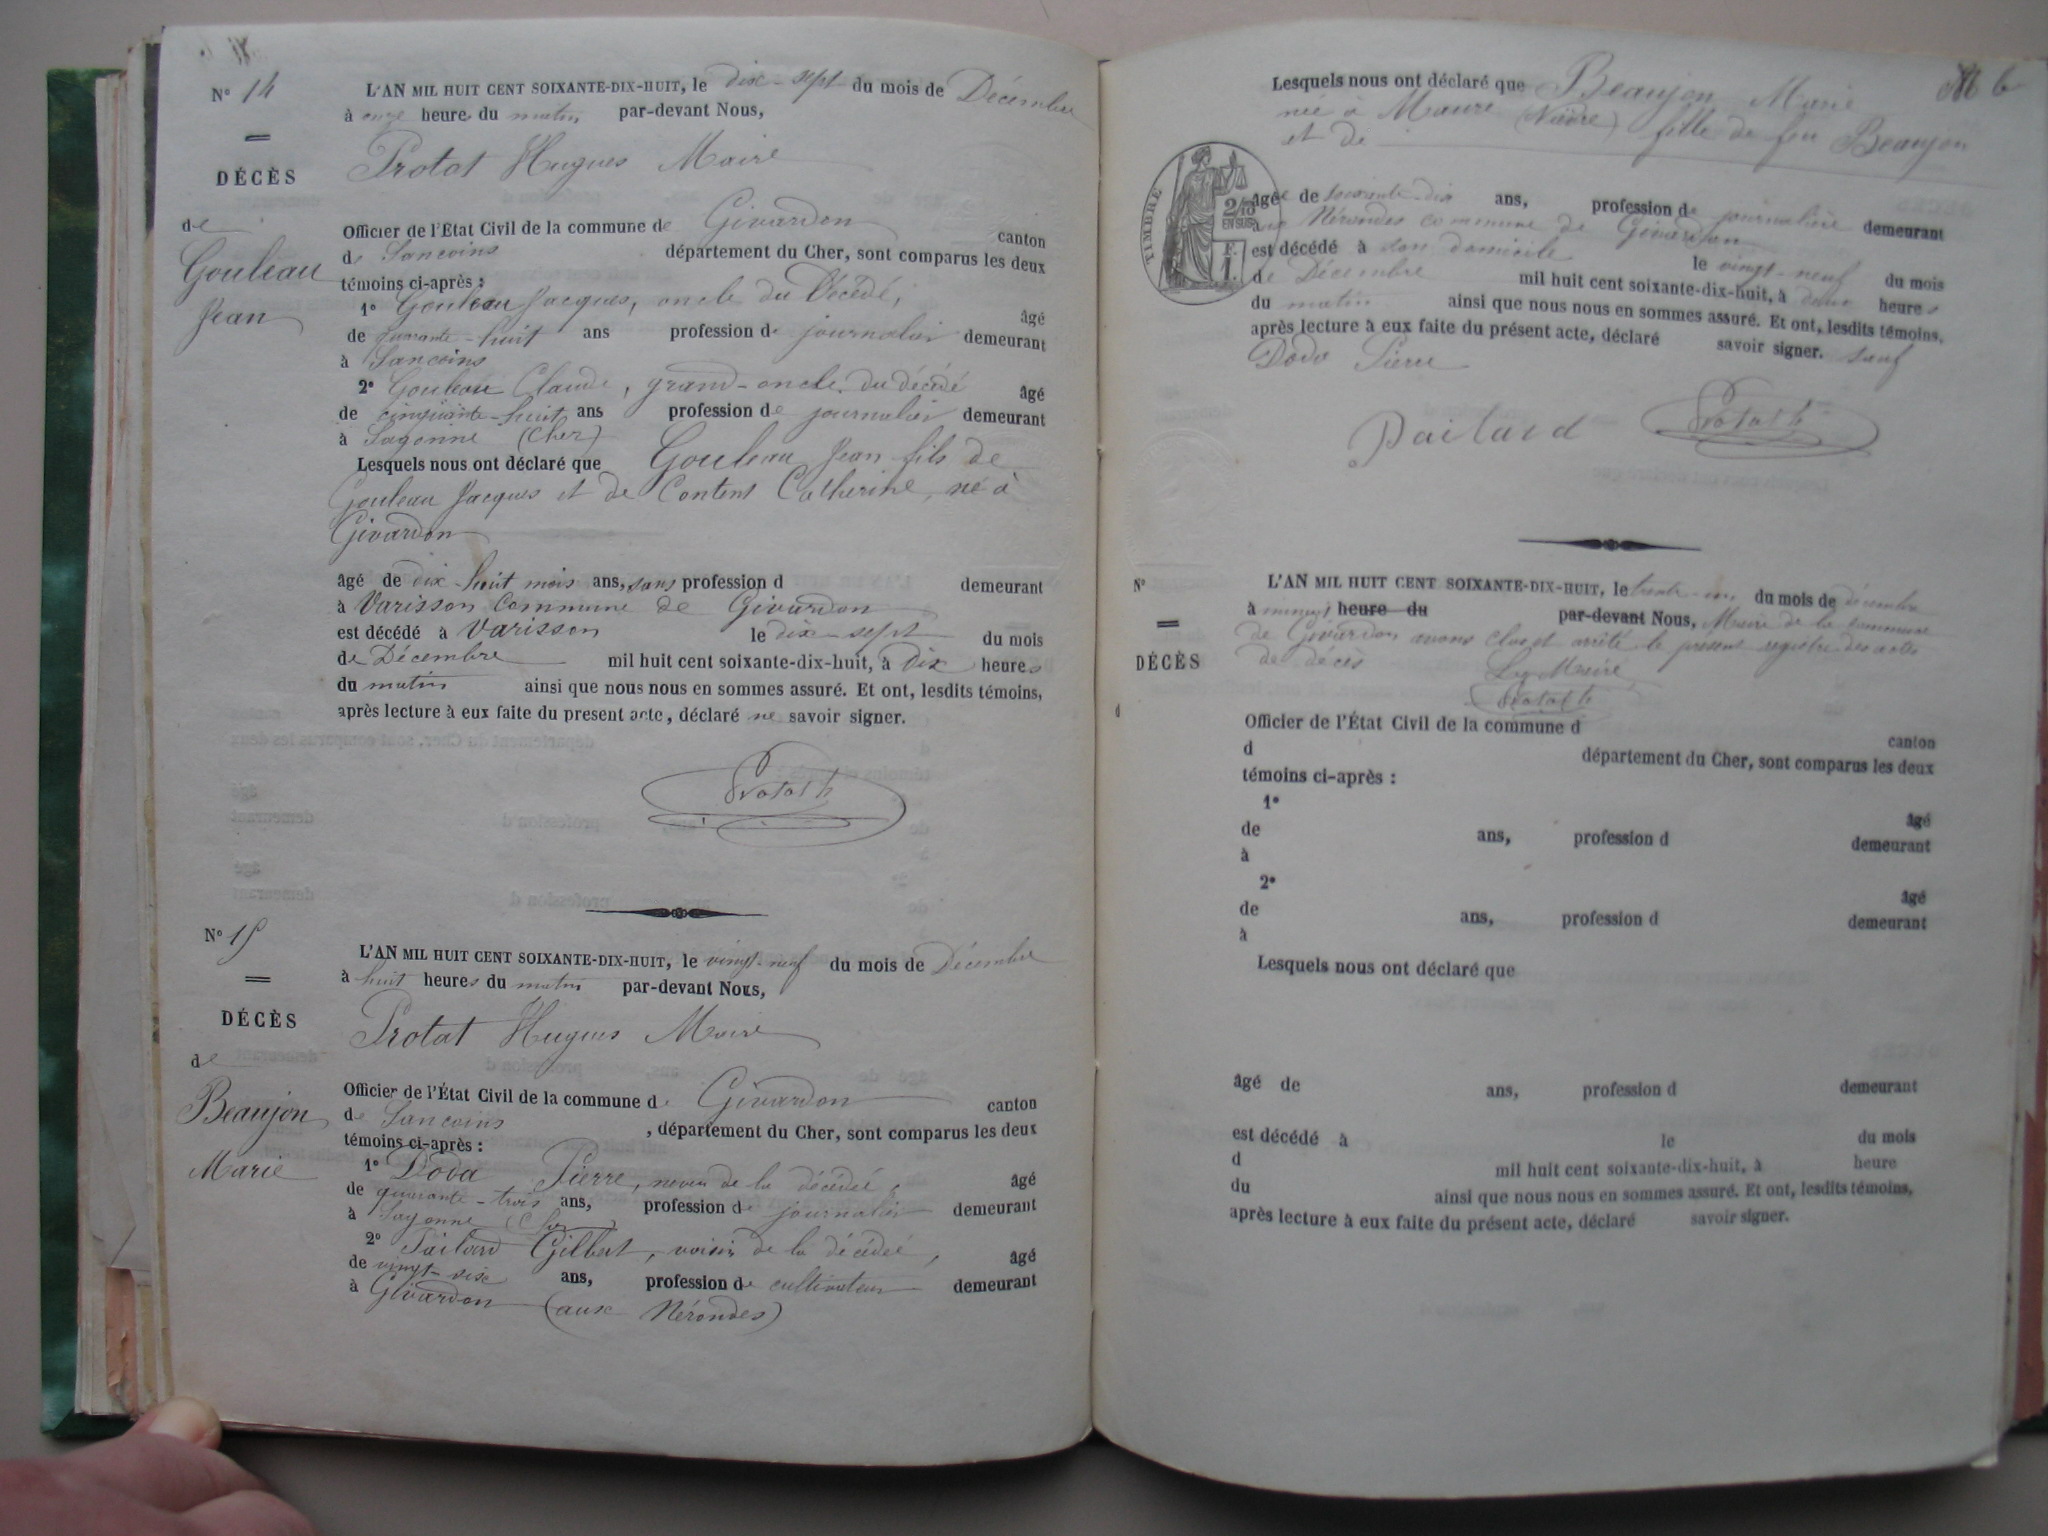 N° 14
L'AN MIL HUIT CENT SOIXANTE-DIX-HUIT, le dix-sept du mois de Décembre
à onze heure du matin par-devant Nous,
DÉCÈS
Protat Hugues Maire
de
Gouleau
Jean
Officier de l'État Civil de la commune de Givardon canton
de Sancoins département du Cher, sont comparus les deux
témoins ci-après :
1° Gouleau Jacques, oncle du Décédé, âgé
de quarante-huit ans profession de journalier demeurant
à Sancoins
2° Gouleau Claude, grand-oncle du décédé âgé
de cinquante-huit ans profession de journalier demeurant
à Sagonne (Cher)
Lesquels nous ont déclaré que Gouleau Jean fils de
Gouleau Jacques et de Content Catherine, né à
Givardon
âgé de dix-huit mois ans, sans profession d demeurant
à Varisson commune de Givardon
est décédé à Varisson le dix-sept du mois
de Décembre mil huit cent soixante-dix-huit, à dix heures
du matin ainsi que nous nous en sommes assuré. Et ont, lesdits témoins,
après lecture à eux faite du présent acte, déclaré ne savoir signer.
Protat h
N° 15
L'AN MIL HUIT CENT SOIXANTE-DIX-HUIT, le vingt-neuf du mois de Décembre
à huit heures du matin par-devant Nous,
DÉCÈS
Protat Hugues Maire
de
Beaujon
Marie
Officier de l'État Civil de la commune de Givardon canton
de Sancoins, département du Cher, sont comparus les deux
témoins ci-après :
1° Doda Pierre, neveu de la décédée, âgé
de quarante-trois ans, profession de journalier demeurant
à Sagonne (Cher)
2° Pailard Gilbert, voisin de la décédée, âgé
de vingt-six ans, profession de cultivateur demeurant
à Givardon (aux Nérondes)
6
Lesquels nous ont déclaré que Beaujon Marie
née à (Nièvre) fille de feu Beaujon
et de
TIMBRE
2/10 EN SUS
F. 1.
âgée de soixante-dix ans, profession de journalière demeurant
aux Nérondes commune de Givardon
est décédé à son domicile le vingt-neuf du mois
de Décembre mil huit cent soixante-dix-huit, à deux heures
du matin ainsi que nous nous en sommes assuré. Et ont, lesdits témoins,
après lecture à eux faite du présent acte, déclaré savoir signer. sauf
Dodo Pierre
Pailard Protat h
N°
L'AN MIL HUIT CENT SOIXANTE-DIX-HUIT, le trente-un du mois de décembre
à minuit heure du par-devant Nous, Maire de la commune
de Givardon avons clos et arrêté le présent registre des actes
DÉCÈS
de décès
Le Maire
Protat h
d
Officier de l'État Civil de la commune d canton
d département du Cher, sont comparus les deux
témoins ci-après :
1° âgé
de ans, profession d demeurant
à
2° âgé
de ans, profession d demeurant
à
Lesquels nous ont déclaré que
âgé de ans, profession d demeurant
est décédé à le du mois
d mil huit cent soixante-dix-huit, à heure
du ainsi que nous nous en sommes assuré. Et ont, lesdits témoins,
après lecture à eux faite du présent acte, déclaré savoir signer.